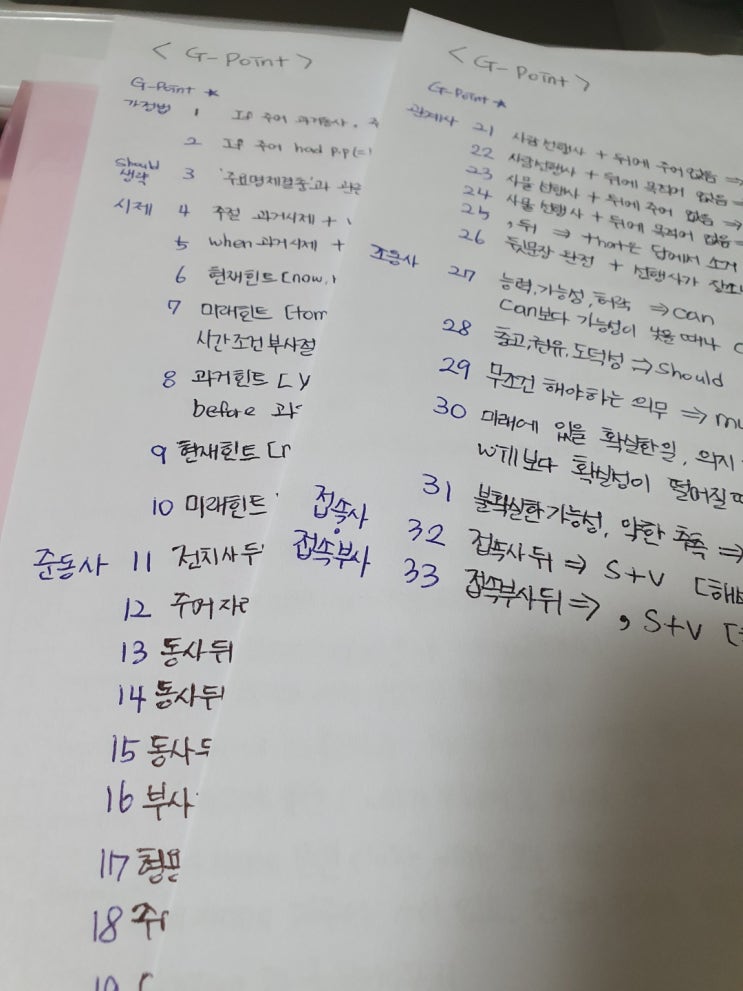 < G-Point >
G-Point ★
가정법 1 If 주어 과거동사, 주
2 If 주어 had p.p(=
should 생략 3 '주요명제결충'과 같은
시제 4 주절 과거시제 +
5 when 과거시제 +
6 현재힌트 [now,
7 미래힌트 [tom
시간조건부사절
8 과거힌트 [y
before 과거
9 현재힌트 [
10 미래힌트
준동사 11 전치사 뒤
12 주어 자리
13 동사 뒤
14 동사 뒤
15 동사 뒤
16 부사
17 형용
18 주
19
< G-Point >
G-Point ★
관계사 21 사람 선행사 + 뒤에 주어 없음 ⇒
22 사람선행사 + 뒤에 목적어 없음 ⇒
23 사물 선행사 + 뒤에 주어 없음 ⇒
24 사물 선행사 + 뒤에 목적어 없음 ⇒
25 , 뒤 ⇒ that은 답에서 소거
26 뒷문장 완전 + 선행사가 장소
조동사 27 능력, 가능성, 허락 ⇒ can
can보다 가능성이 낮을 때나 c
28 충고, 권유, 도덕성 ⇒ should
29 무조건 해야하는 의무 ⇒ mu
30 미래에 있을 확실한일, 의지
will보다 확실성이 떨어질 때
31 불확실한 가능성, 약한 추측 ⇒
접속사 32 접속사 뒤 ⇒ S+V [해
접속부사 33 접속부사 뒤 ⇒ , S+V [